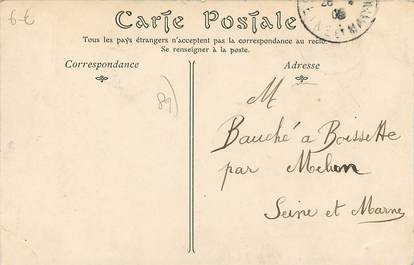 6€
Carte Postale
Tous les pays étrangers n'acceptent pas la correspondance au recto.
Se renseigner à la poste.
Correspondance
Adresse
89)
M
Bauché a Boissette
par Melun
Seine et Marne